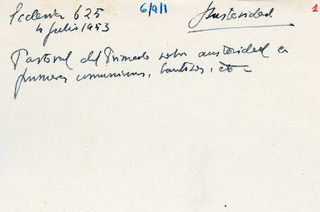 Ecclesia 625
6/9/1
Austeridad
1
4 julio 1953
Pastoral del Primado sobre austeridad en
primeras comuniones, bautizos, etc